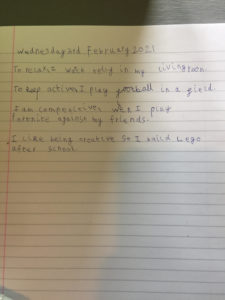 Wednesday 3rd February 2021
To relax I watch telly in my living room.
To keep active I play football in a field.
I am competecive when I play
fortnite against my friends.
I like being creative so I build Lego
after school.